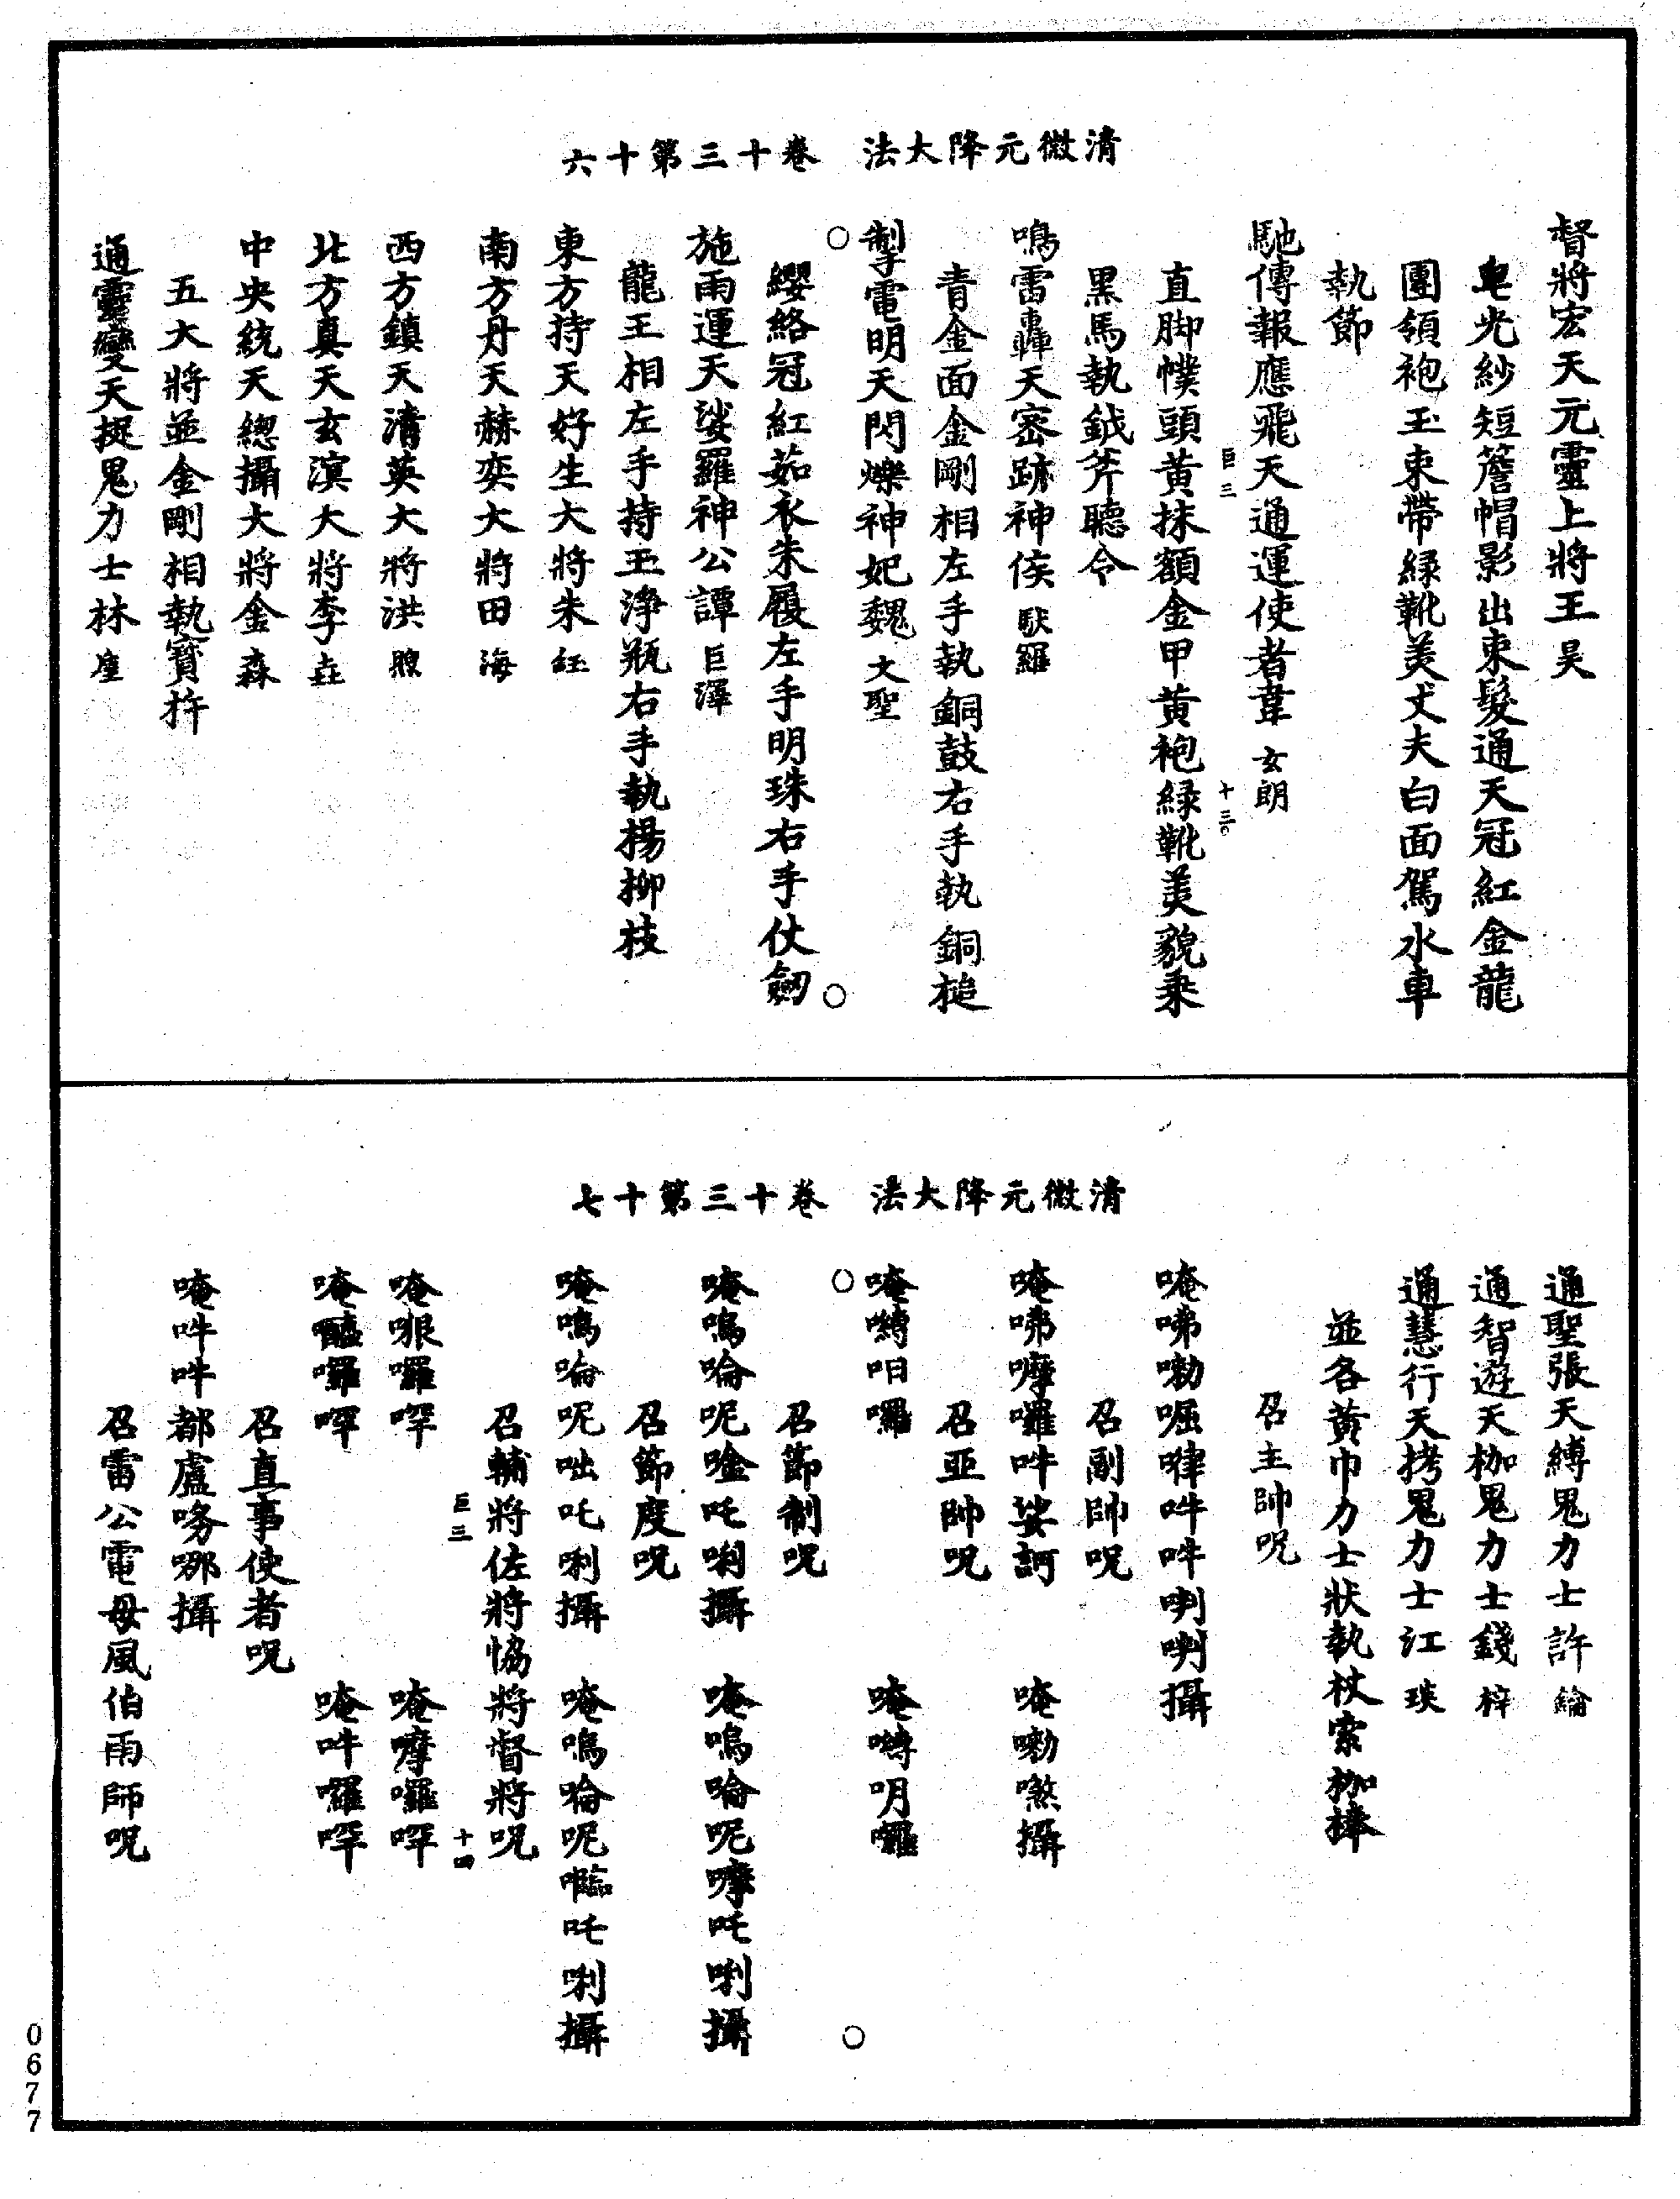 清微元降大法　卷十三第十六
督將宏天元靈上將王昊
皂光紗短簷帽影出束髮通天冠紅金龍
團領袍玉束帶綠靴美丈夫白面駕水車
執節
馳傳報應飛天通運使者韋玄朗
巨三　十三
直脚幞頭黃抹額金甲黃袍綠靴美貌乘
黑馬執鉞斧聽令
鳴雷轟天密跡神侯馱羅
青金面金剛相左手執銅鼓右手執銅槌
掣電明天閃爍神妃魏文聖
纓絡冠紅茹衣朱履左手明珠右手仗劒
施雨運天娑羅神公譚巨澤
龍王相左手持玉淨瓶右手執楊柳枝
東方持天好生大將朱鈺
南方丹天赫奕大將田海
西方鎮天清英大將洪
北方真天玄溟大將李垚
中央統天總攝大將金森
五大將並金剛相執寶杵
通靈變天捉鬼力士林
清微元降大法　卷十三第十七
通聖張天縛鬼力士許綸
通智遊天枷鬼力士錢梓
通慧行天拷鬼力士江琰
並各黃巾力士狀執杖索枷棒
召主帥呪
唵咈嘞啒嘩吽吽唎唎攝
召副帥呪
唵咈嚤囉吽娑訶　唵嘞噝攝
召亞帥呪
唵嚩呾囉　唵囀明囉
召節制呪
唵嗚㖮呢唫吒唎攝　唵嗚㖮呢嚤吒唎攝
召節度呪
唵嗚㖮呢咄吒唎攝　唵嗚㖮呢㘕吒唎攝
召輔將佐將恊將督將呪
巨三　十四
唵哏囉㖃　唵嚤囉㖃
唵囉㖃　唵吽囉㖃
召直事使者呪
唵吽吽都盧哪攝
召雷公電母風伯雨師呪
0677